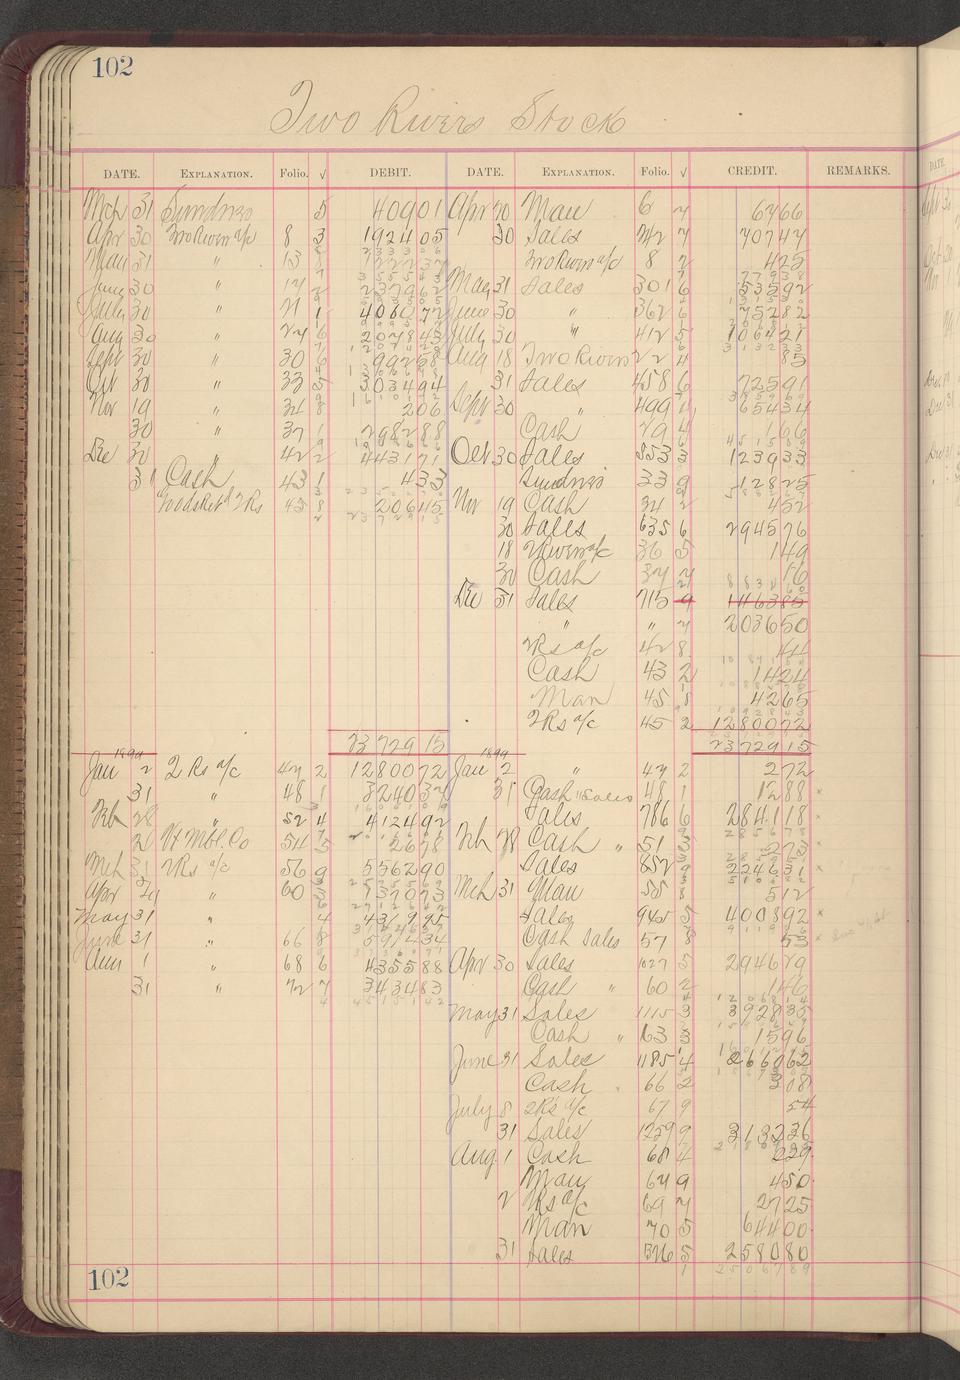 102
Two Rivers Stock
DATE. EXPLANATION. Folio. √ DEBIT. DATE. EXPLANATION. Folio. √ CREDIT. REMARKS.
Mch 31 Sundries 5 40901 Apr 30 Man 6 7 6766
Apr 30 Two River a/c 8 3 192405 30 Sales 342 7 70747
May 31 " 13 Two River a/c 8 2 425
June 30 " 17 2 237962 May 31 Sales 301 6 53592
July 30 " 21 1 408072 June 30 " 362 6 75282
Aug 30 " 27 6 207843 July 30 " 412 5 106421
Sept 30 " 30 6 99258 Aug 18 Two Rivers 22 4 85
Oct 30 " 33 5 303494 31 Sales 458 6 72591
Nov 19 " 34 8 206 Sept 30 " 499 65434
30 " 37 1 298288 Cash 29 4 166
Dec 30 " 42 2 443171 Oct 30 Sales 553 3 123933
31 Cash 43 1 433 Sundries 33 9 12825
Goods Retd 2 Rs 45 8 20645 Nov 19 Cash 34 2 452
30 Sales 635 6 294576
18 2 River a/c 36 5 149
30 Cash 37 7 16
Dec 31 Sales 715 9 146385
" " 7 203650
2 Rs a/c 42 8 44
Cash 43 2 1424
Man 45 8 4265
2 Rs a/c 45 2 1280072
2372915 2372915
1899 1899
Jan 2 2 Rs a/c 47 2 1280072 Jan 2 " 47 2 272
31 " 48 1 324037 31 Cash " Sales 48 1 1288
Feb 28 " 52 4 412492 Sales 786 6 284118
26 Vt Mbl. Co 54 5 2678 Feb 28 Cash " 51 3 273
Mch 31 2 Rs a/c 56 9 556290 Sales 852 9 224631
Apr " 60 5 537073 Mch 31 Man 55 8 512
May 31 " 4 431995 Sales 945 5 400892
June 31 " 66 8 591434 Cash Sales 57 8 53
Aug 1 " 68 6 435588 Apr 30 Sales 1027 5 294629
31 " 72 7 343483 Cash " 60 2 146
May 31 Sales 1115 3 392835
Cash " 63 3 1596
June 31 Sales 1185 4 266062
Cash " 66 2 308
July 8 2 Rs a/c 67 9 54
31 Sales 1259 9 313236
Aug 1 Cash 68 4 229
Man 69 9 450
2 2 Rs a/c 69 7 2725
Man 70 5 64400
31 Sales 5 258080
102